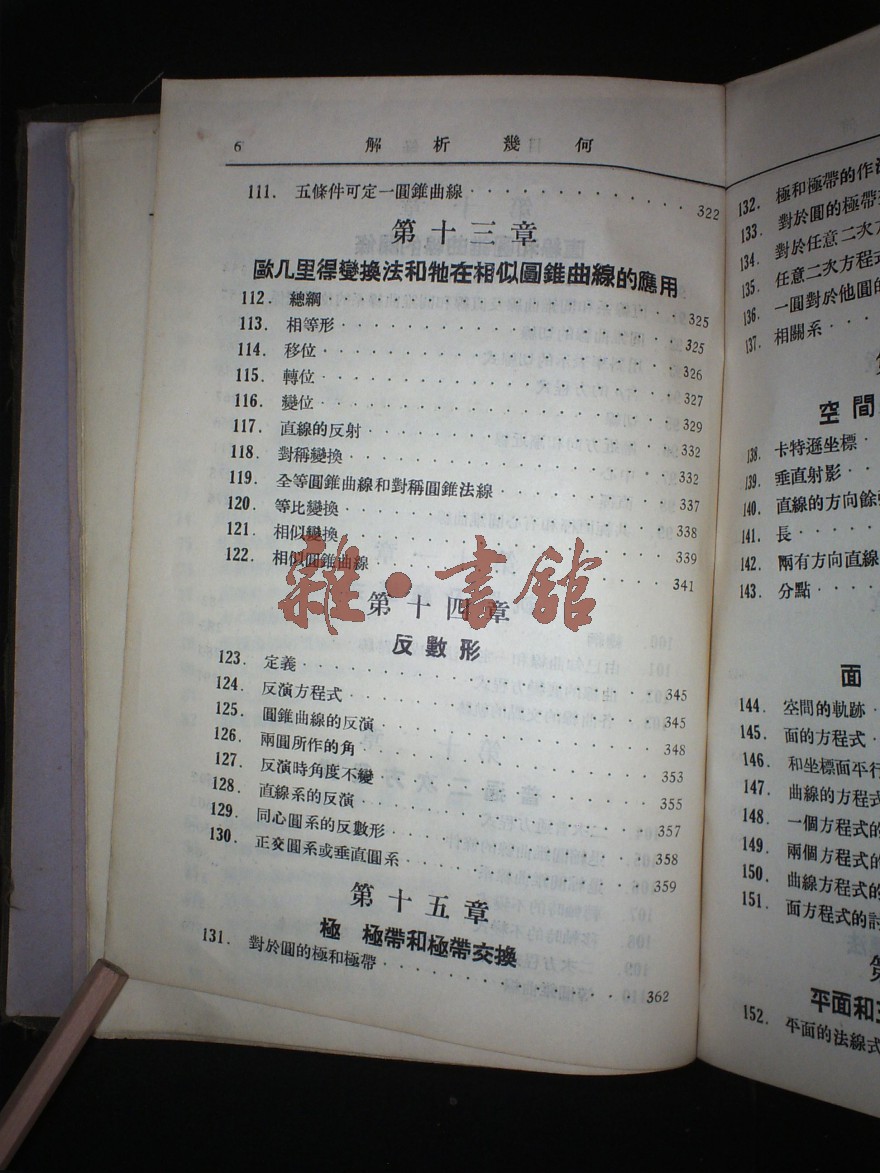 6 解析幾何
111. 五條件可定一圓錐曲線 322
第十三章
歐几里得變換法和牠在相似圓錐曲線的應用
112. 總綱 325
113. 相等形 325
114. 移位 326
115. 轉位 327
116. 變位 329
117. 直線的反射 332
118. 對稱變換 332
119. 全等圓錐曲線和對稱圓錐法線 337
120. 等比變換 338
121. 相似變換 339
122. 相似圓錐曲線 341
雜·書館
第十四章
反數形
123. 定義 345
124. 反演方程式 345
125. 圓錐曲線的反演 348
126. 兩圓所作的角 353
127. 反演時角度不變 355
128. 直線系的反演 357
129. 同心圓系的反數形 358
130. 正交圓系或垂直圓系 359
第十五章
極 極帶和極帶交換
131. 對於圓的極和極帶 362
132. 極和極帶的作
133. 對於圓的極帶
134. 對於任意二次方
135. 任意二次方程式
136. 一圓對於他圓的
137. 相關系
空間
138. 卡特遜坐標
139. 垂直射影
140. 直線的方向餘
141. 長
142. 兩有方向直線
143. 分點
面
144. 空間的軌跡
145. 面的方程式
146. 和坐標面平行
147. 曲線的方程式
148. 一個方程式的
149. 兩個方程式的
150. 曲線方程式的
151. 面方程式的討
第
平面和
152. 平面的法線式